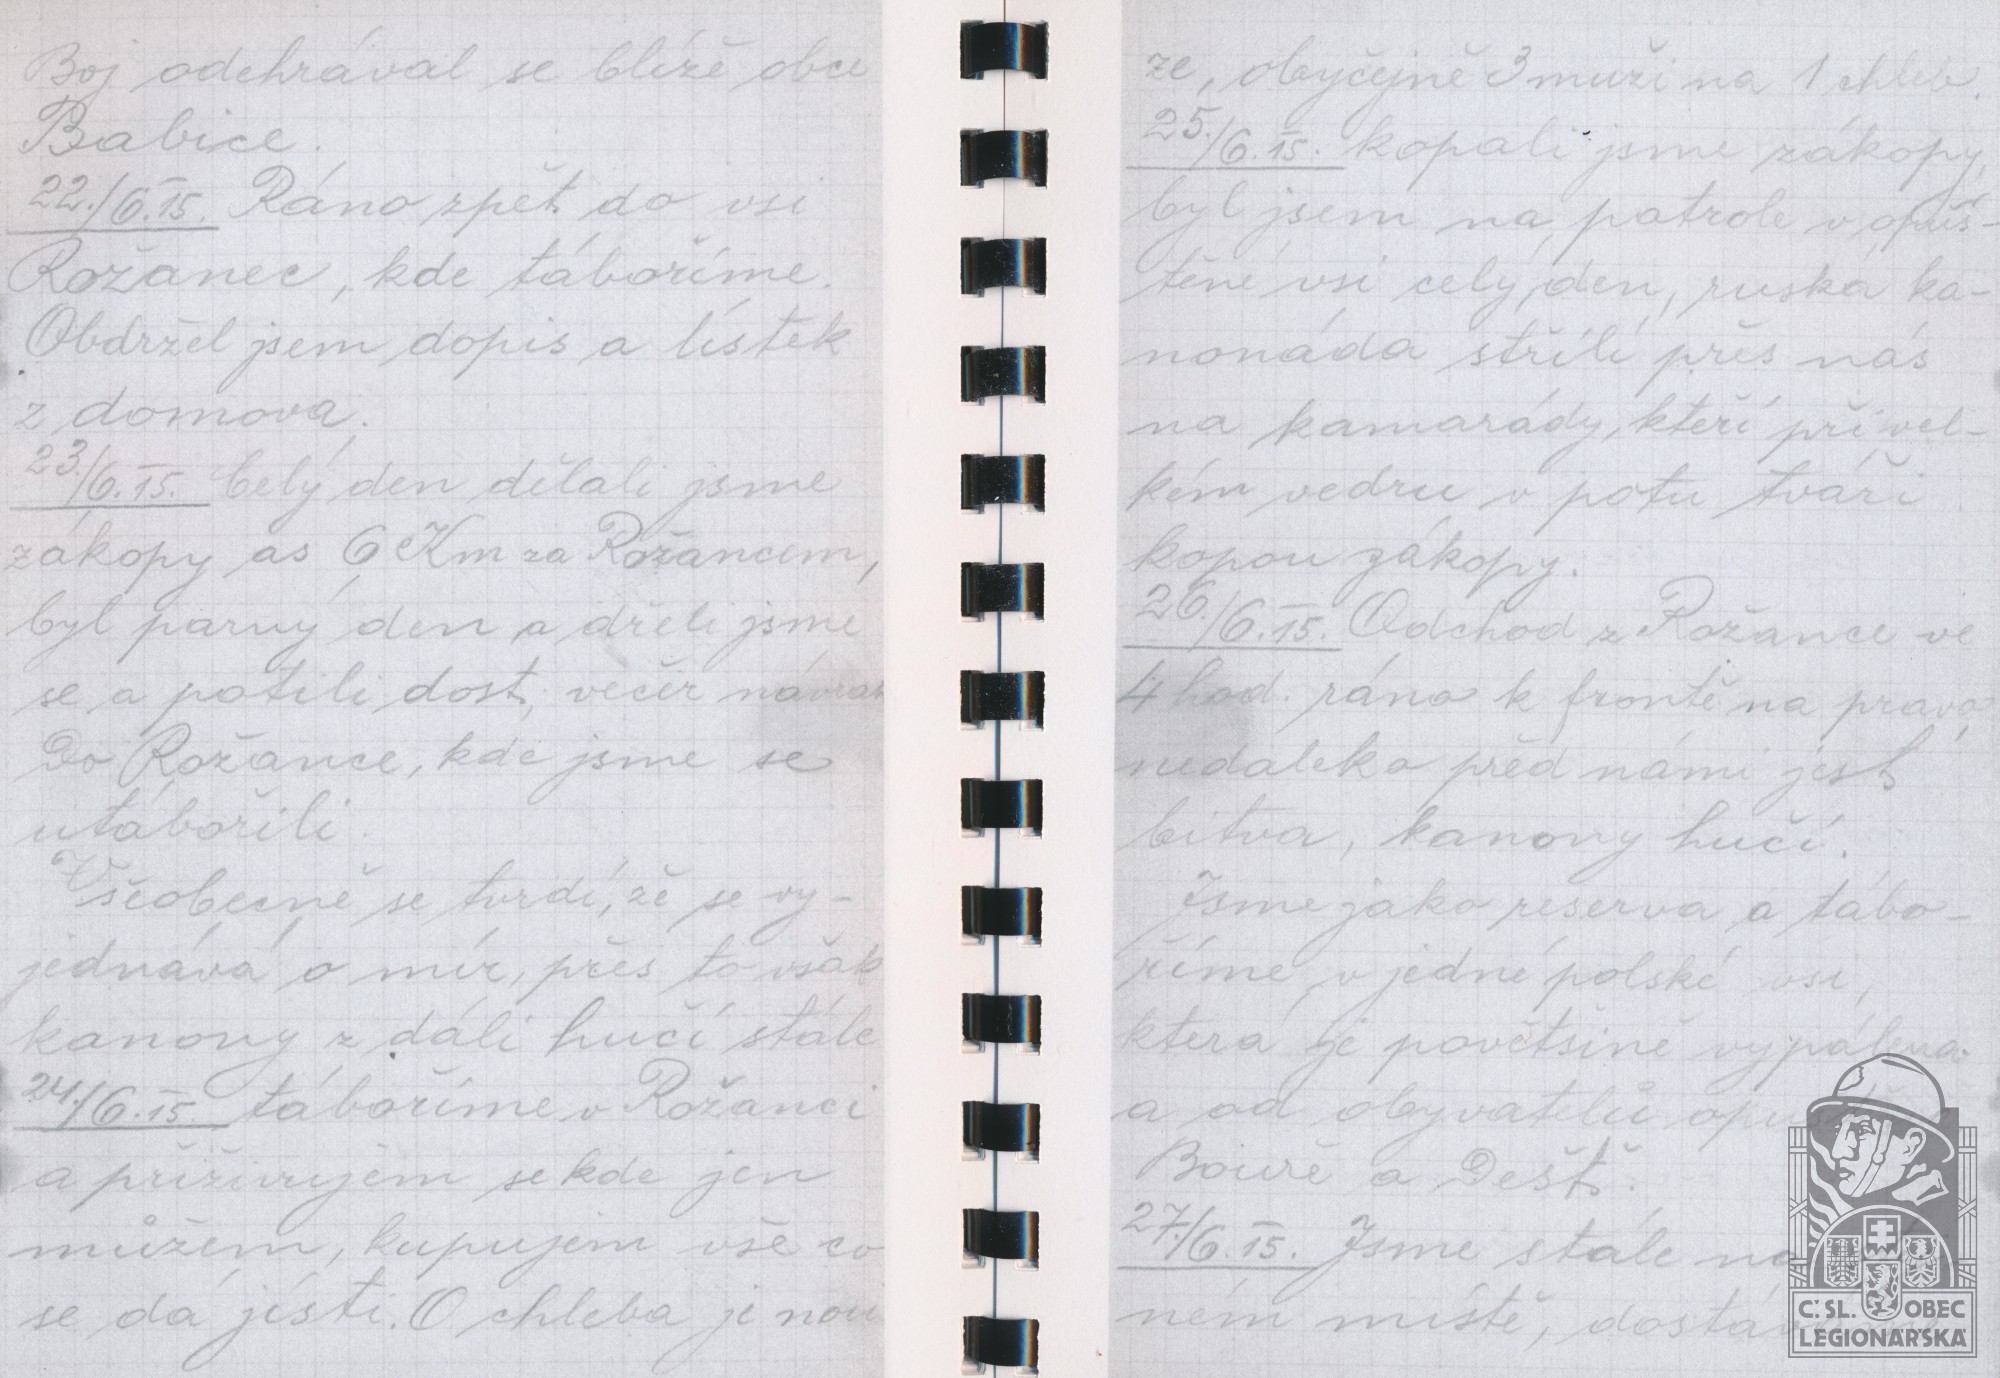 Boj odehrával se blíže obce
Babice.
22./6.15. Ráno zpět do vsi
Rožanec, kde táboříme.
Obdržel jsem dopis a lístek
z domova.
23./6.15. Celý den dělali jsme
zákopy as 6 Km za Rožancem,
byl parný den a dřeli jsme
se a potili dost, večer návrat
do Rožance, kde jsme se
utábořili.
Všeobecně se tvrdí, že se vy-
jednává o mír, přes to však
kanony z dáli hučí stále
24./6.15. táboříme v Rožanci
a přiživujem se kde jen
můžem, kupujem vše co
se dá jísti. O chleba je nou
ze, obyčejně 3 muži na 1 chleb.
25./6.15. kopali jsme zákopy,
byl jsem na patrole v opuš-
těné vsi celý den, ruská ka-
nonáda střílí přes nás
na kamarády, kteří při vel-
kém vedru v potu tváři
kopou zákopy.
26./6.15. Odchod z Rožance ve
4 hod. ráno k frontě na pravo,
nedaleko před námi jest
bitva, kanony hučí.
Jsme jako reserva a tábo-
říme v jedné polské vsi,
která je povětšině vypálena
a od obyvatelů
Bouře a Dešť.
27./6.15. Jsme stále
ném místě,
Č.SL. OBEC
LEGIONÁŘSKÁ